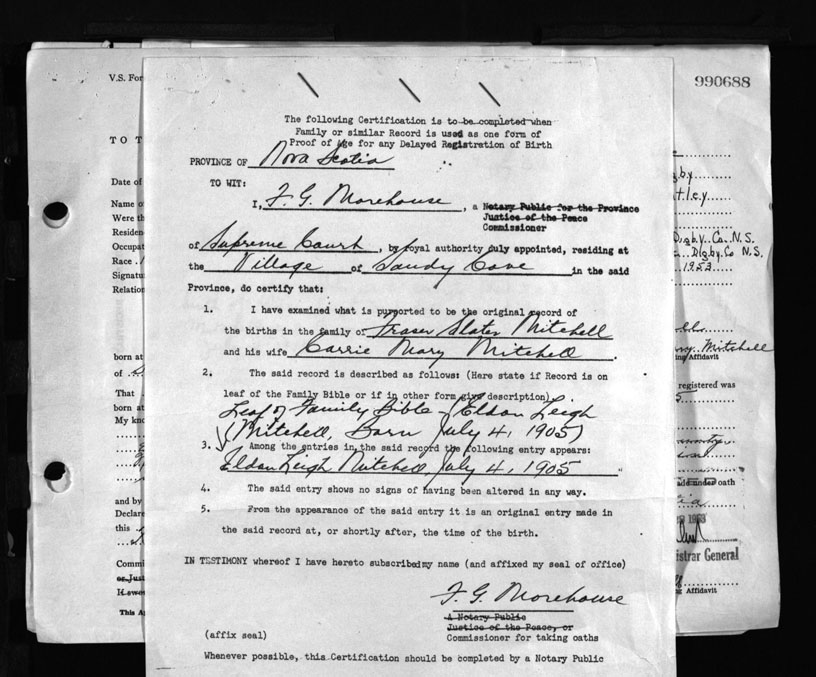 V.S. For
990688
The following Certification is to be completed when
Family or similar Record is used as one form of
Proof of Age for any Delayed Registration of Birth
PROVINCE OF Nova Scotia
TO WIT:
I, F. G. Morehouse, a Notary Public for the Province
Justice of the Peace
Commissioner
of Supreme Court, by royal authority duly appointed, residing at
the Village of Sandy Cove in the said
Province, do certify that:
1. I have examined what is purported to be the original record of
the births in the family of Fraser Slater Mitchell
and his wife Carrie Mary Mitchell.
2. The said record is described as follows: (Here state if Record is on
leaf of the Family Bible or if in other form give description)
Leaf of Family Bible (Eldon Leigh
Mitchell, Born July 4, 1905)
3. Among the entries in the said record the following entry appears:
Eldon Leigh Mitchell, July 4, 1905 "
4. The said entry shows no signs of having been altered in any way.
5. From the appearance of the said entry it is an original entry made in
the said record at, or shortly after, the time of the birth.
IN TESTIMONY whereof I have hereto subscribed my name (and affixed my seal of office)
F. G. Morehouse
A Notary Public
Justice of the Peace, or
(affix seal) Commissioner for taking oaths
Whenever possible, this Certification should be completed by a Notary Public
TO T
Date of
Name o
Were th
Residen
Occupat
Race
Signatu
Relation
born at
of
That
born at
My kno
and by
Declare
this
Commi
or Just
Howev
This A
gby
tley
Digby Co. N.S.
Digby Co N.S.
1953
Mitchell
ing Affidavit
registered was
5
ade under oath
1953
istrar General
ng Affidavit